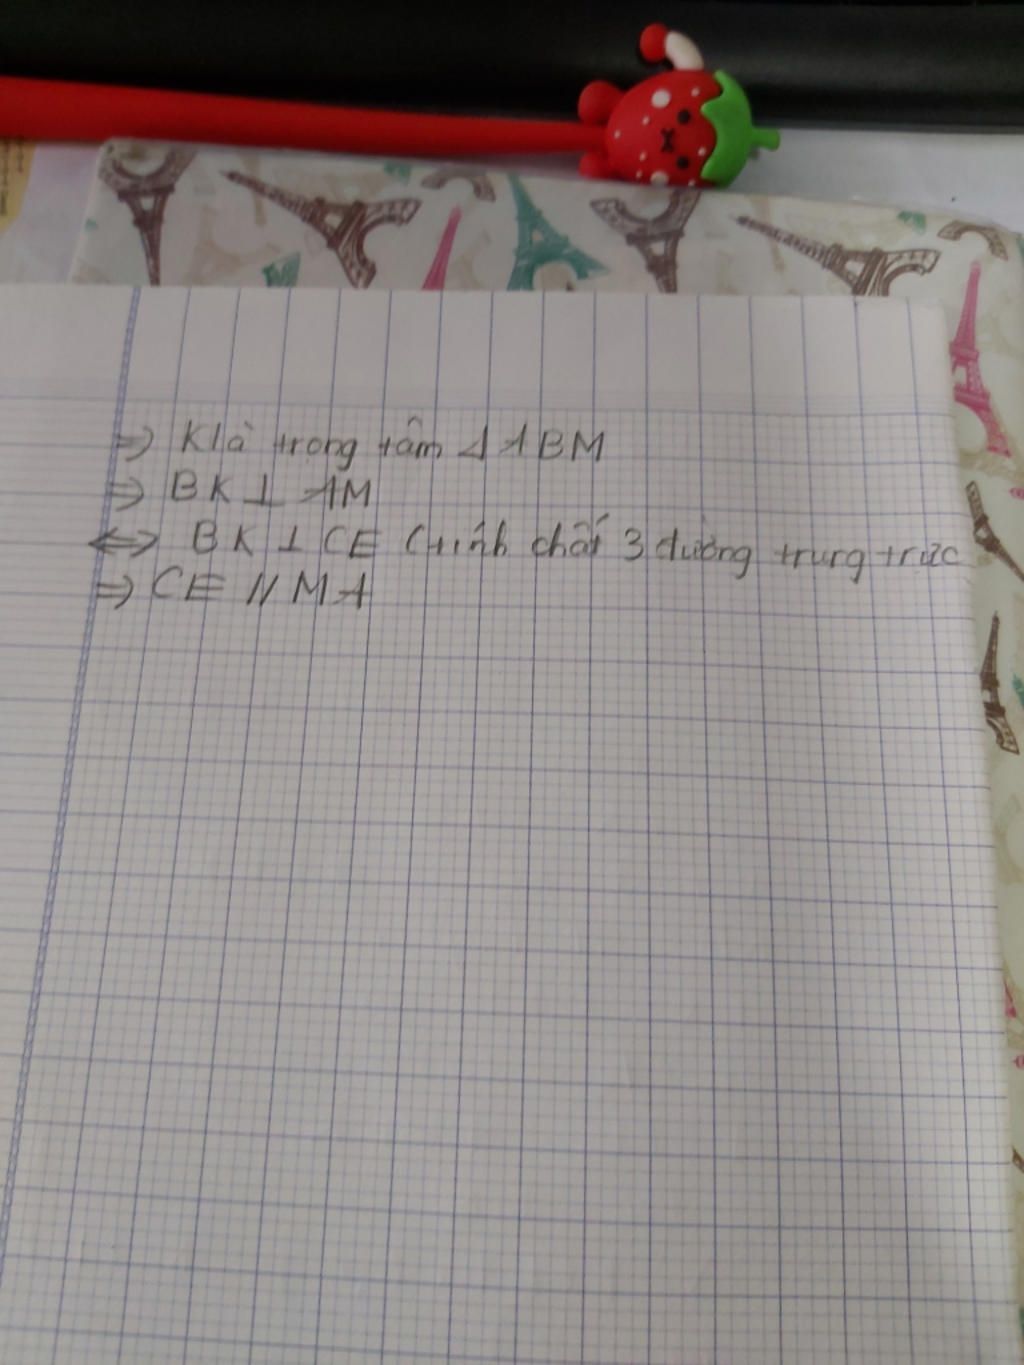 => K là trọng tâm Δ ABM
=> BK ⊥ AM
<=> BK ⊥ CE (tính chất 3 đường trung trực
=> CE // MA